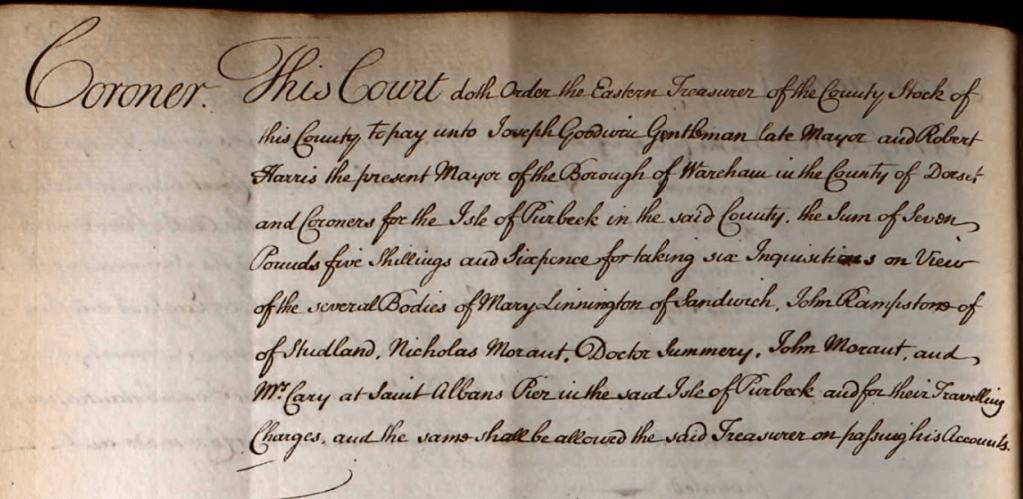 Coroner. This Court doth Order the Eastern Treasurer of the County Stock of
this County to pay unto Joseph Goodwin Gentleman late Mayor and Robert
Harris the present Mayor of the Borough of Wareham in the County of Dorset
and Coroners for the Isle of Purbeck in the said County, the Sum of Seven
Pounds five Shillings and Sixpence for taking six Inquisitions on View
of the several Bodies of Mary Linnington of Sandwich, John Rampstone of
of Studland, Nicholas Moraut, Doctor Summery, John Moraut, and
Mrs. Cary at Saint Albans Pier in the said Isle of Purbeck and for their Travelling
Charges, and the same shall be allowed the said Treasurer on passing his Accounts.